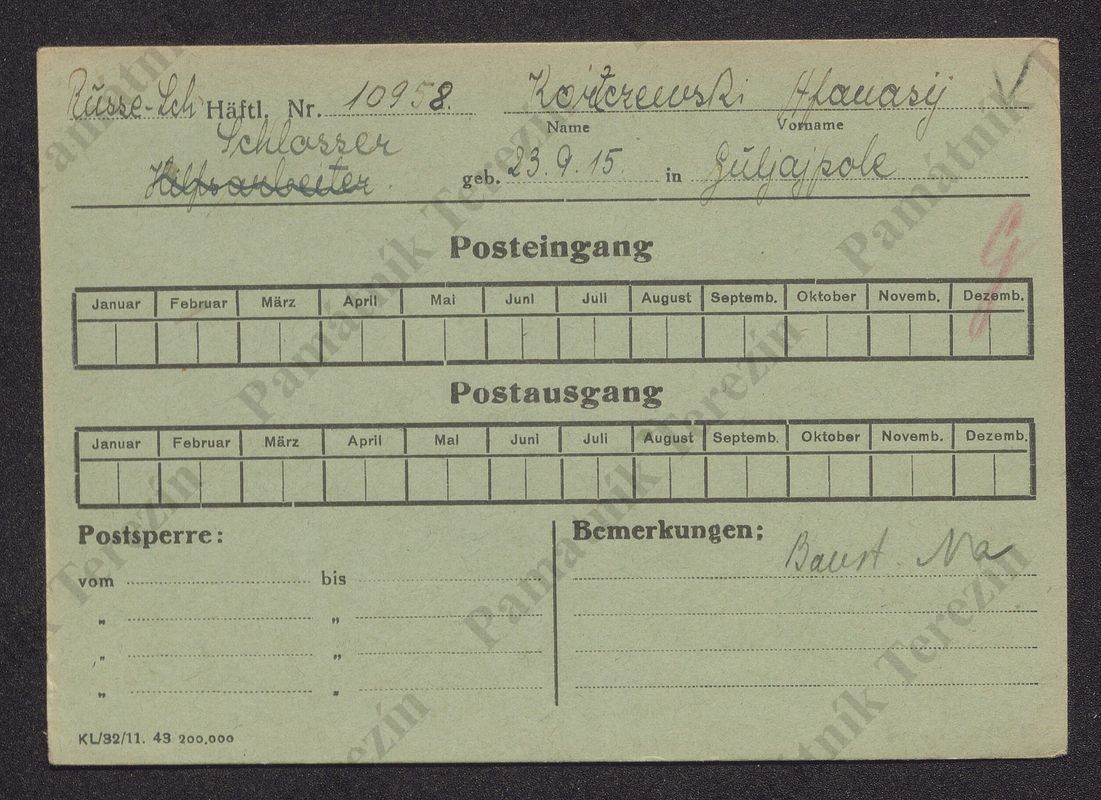 Russe-Sch Häftl. Nr. 10958. Afanasij
Name Vorname
Schlosser
Hilfsarbeiter geb. 23.9.15. in Guljajpole
Posteingang
Januar Februar März April Mai Juni Juli August Septemb. Oktober Novemb. Dezemb.
Postausgang
Januar Februar März April Mai Juni Juli August Septemb. Oktober Novemb. Dezemb.
Postsperre: Bemerkungen:
Baust. Na
vom bis
" "
" "
" "
KL/32/11. 43 200,000
Památník Terezín